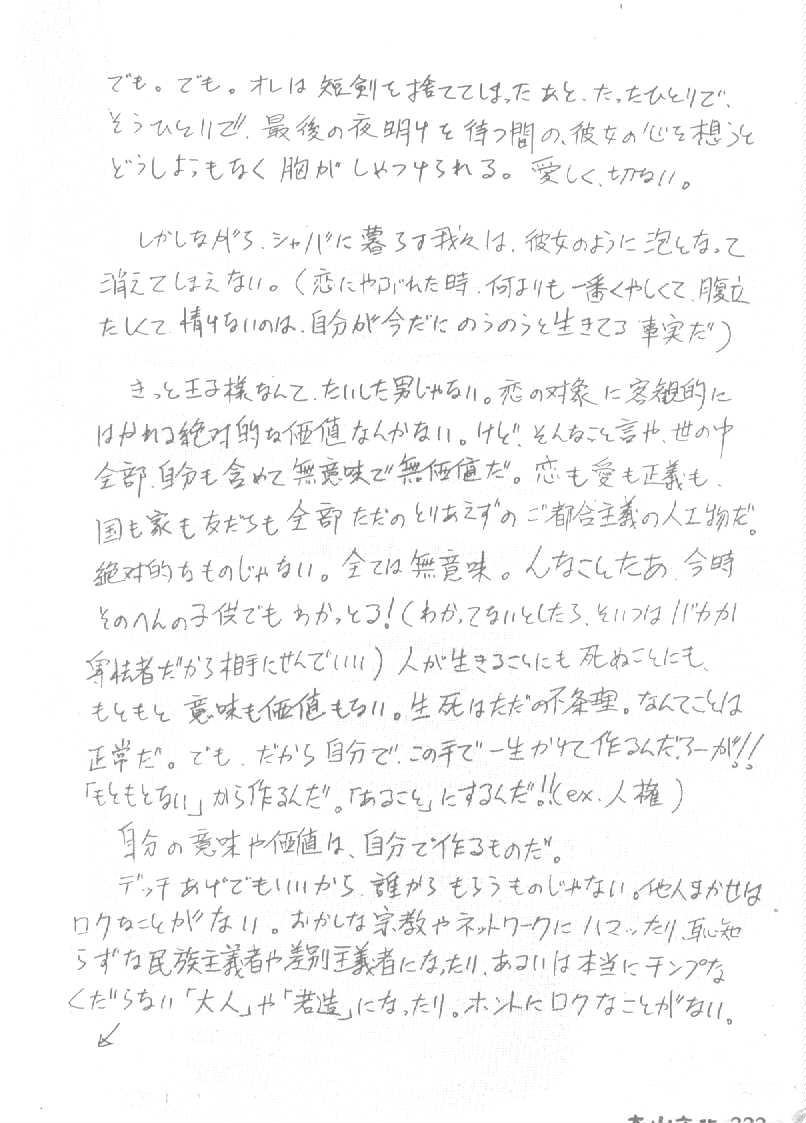 でも。でも。オレは短剣を捨ててしまったあと、たったひとりで、
そうひとりで、最後の夜明けを待つ間の、彼女の心を想うと
どうしようもなく胸がしめつけられる。愛しく、切ない。
しかしながら、シャバに暮らす我々は、彼女のように泡となって
消えてしまえない。(恋にやぶれた時、何よりも一番くやしくて、腹立
たしくて情けないのは、自分が今だにのうのうと生きてる事実だ)
きっと王子様なんて、たいした男じゃない。恋の対象に客観的に
はかれる絶対的な価値なんかない。けど、そんなこと言や、世の中
全部、自分も含めて無意味で無価値だ。恋も愛も正義も、
国も家も友だちも全部ただのとりあえずのご都合主義の人工物だ。
絶対的なものじゃない。全ては無意味。んなこたあ、今時
そのへんの子供でもわかっとる!(わかってないとしたら、そいつはバカか
卑怯者だから相手にせんでいい)人が生きることにも死ぬことにも、
もともと意味も価値もない。生死はただの不条理。なんてことは
正常だ。でも、だから自分で、この手で一生かけて作るんだろーが!!
「もともとない」から作るんだ。「あること」にするんだ!!(ex.人権)
自分の意味や価値は、自分で作るものだ。
デッチあげでもいいから、誰からもらうものじゃない。他人まかせは
ロクなことがない。おかしな宗教やネットワークにハマッたり、恥知
らずな民族主義者や差別主義者になったり、あるいは本当にチンプな
くだらない「大人」や「若造」になったり。ホントにロクなことがない。
↙